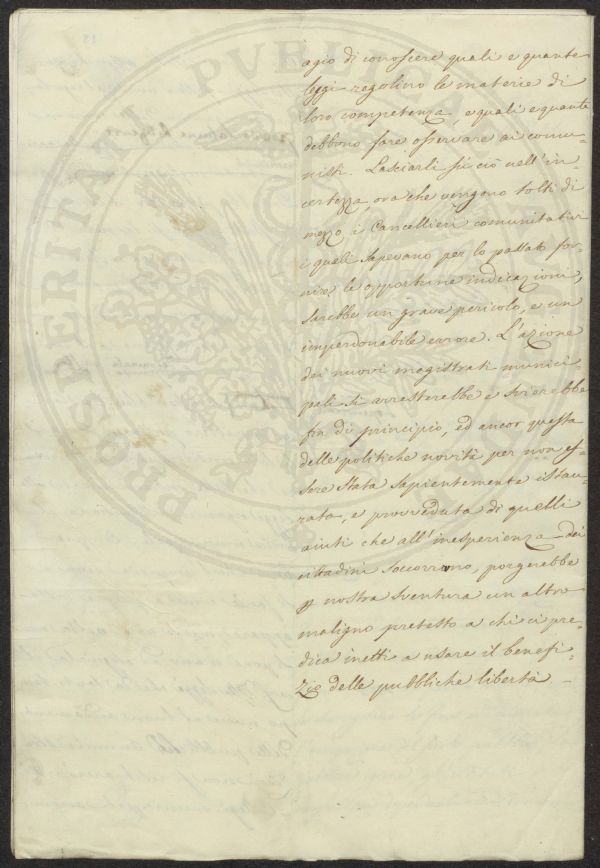 PROSPERITATI PUBLICAE
agio di conoscere quali e quante
leggi regolino le materie di
loro competenza, e quali e quante
debbono fare osservare ai comu-
nisti. Lasciarli su ciò nell'in-
certezza, ora che vengono tolti di
mezzo i Cancellieri comunitativi
i quali sapevano per lo passato for-
nire le opportune indicazioni,
sarebbe un grave pericolo, e un
imperdonabile errore. L'azione
dei nuovi magistrati munici-
pali si arresterebbe e svierebbe
fin di principio, ed ancor questa
delle politiche novità per non es-
sere stata sapientemente istau-
rata, e provveduta di quelli
aiuti che all'inesperienza dei
cittadini soccorrono, porgerebbe
p nostra sventura un altro
maligno pretesto a chi ci pre-
dica inetti a usare il benefi-
zio delle pubbliche libertà. —